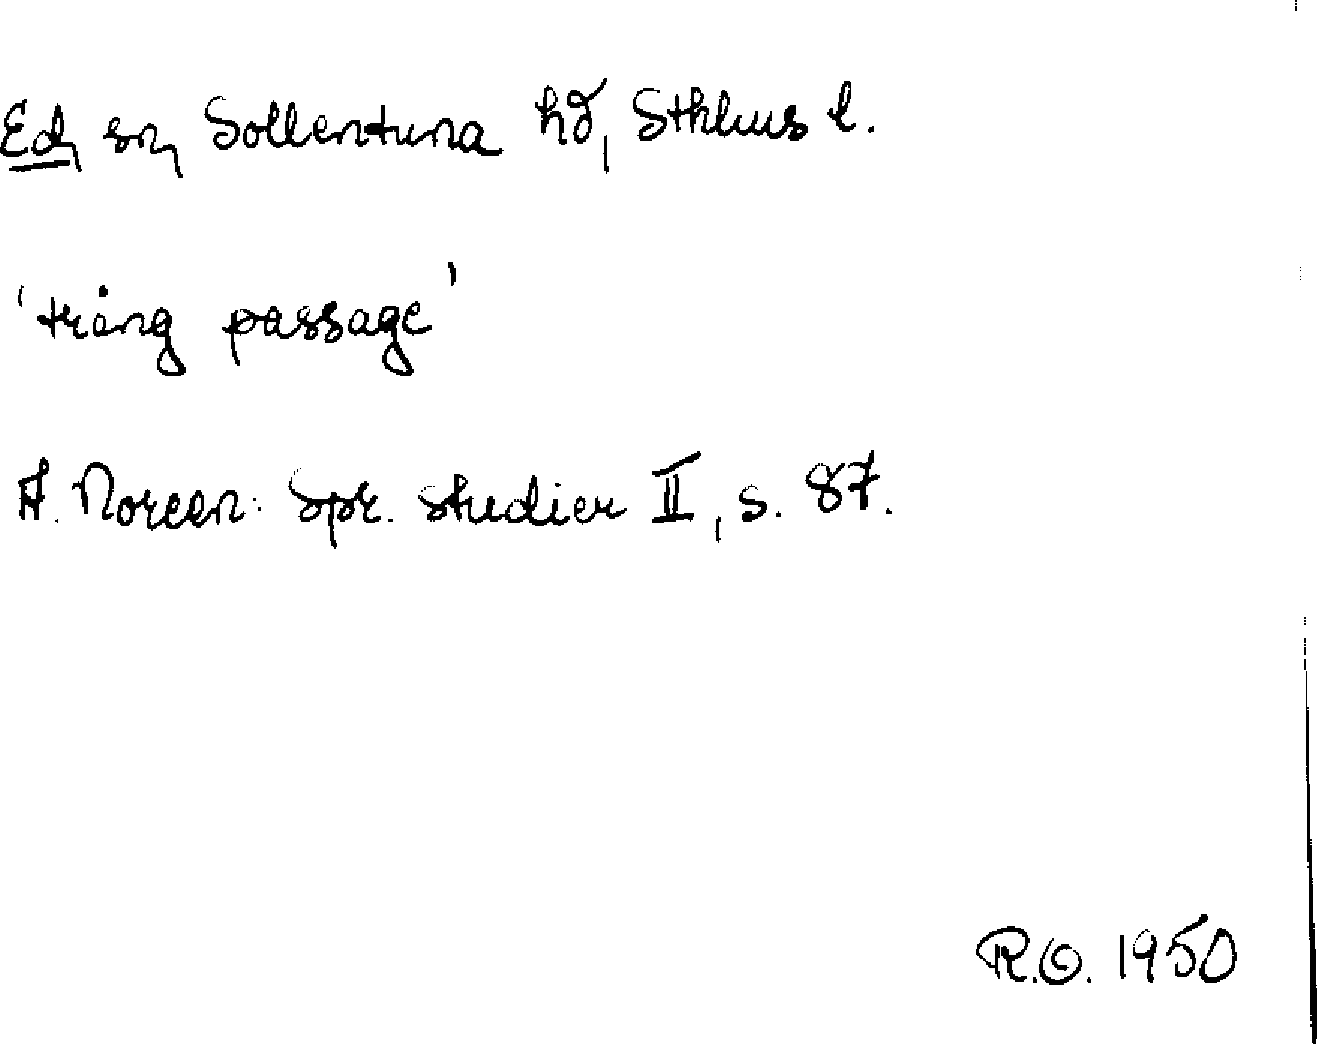 Ed, sn, Sollentuna hd, Sthlms l.
'trång passage'
A. Noreen: Spr. studier II, s. 87.
R.O. 1950